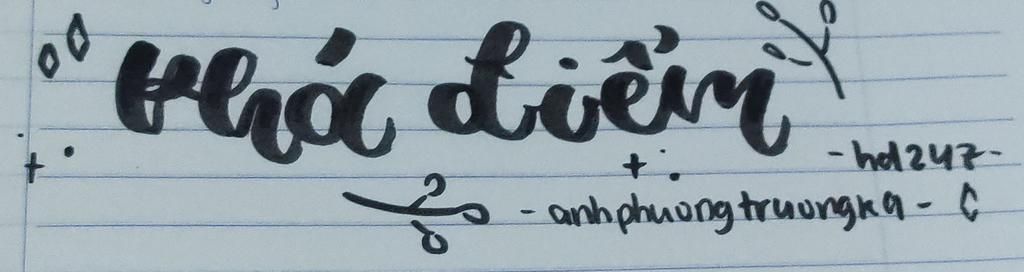 thóc điểm
-hd247-
-anhphuongtruongka-